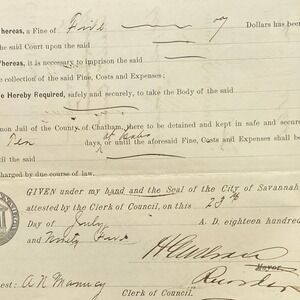 hereas, a Fine of Five Dollars has been
the said Court upon the said
Whereas, it is necessary to imprison the said
the collection of the said Fine, Costs and Expenses;
e Hereby Required, safely and securely, to take the Body of the said
mon Jail of the County of Chatham, there to be detained and kept in safe and secure
Ten days, or until the aforesaid Fine, Costs and Expenses shall be
til the said
harged by due course of law.
GIVEN under my hand and the Seal of the City of Savannah
attested by the Clerk of Council, on this 23rd
Day of July A. D. eighteen hundred
and Ninety Four
Mayor
Recorder
est:
Clerk of Council.